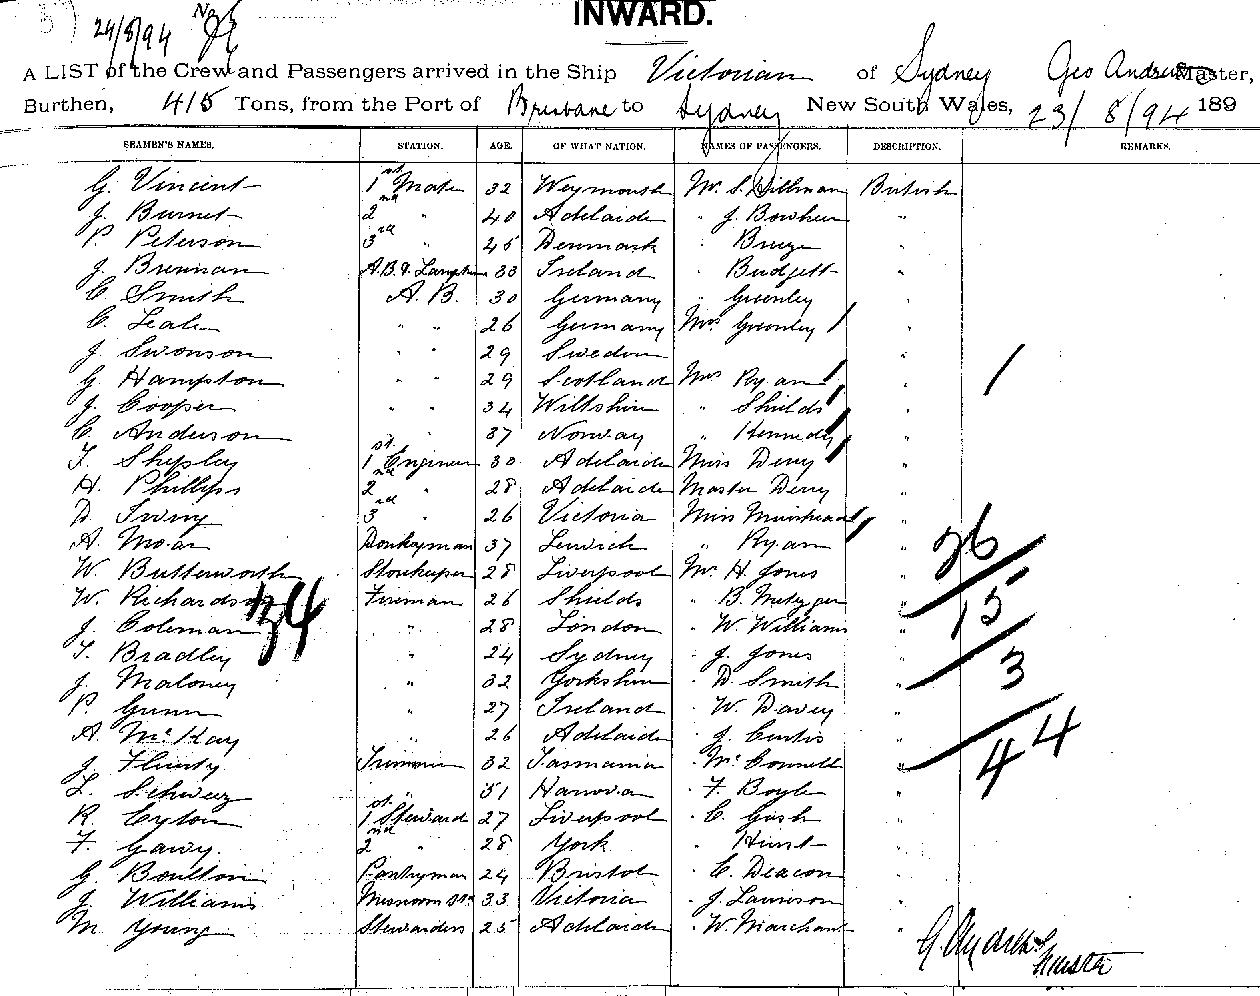 24/8/94
INWARD.
A LIST of the Crew and Passengers arrived in the Ship Victorian of Sydney Geo Andrews Master,
Burthen, 415 Tons, from the Port of Brisbane to Sydney New South Wales, 23/8/94 189
SEAMEN'S NAMES. STATION. AGE. OF WHAT NATION. NAMES OF PASSENGERS. DESCRIPTION. REMARKS.
G. Vincent 1st Mate 32 Weymouth Mr. S. Dillman British
J. Burnet 2nd " 40 Adelaide " J. Bowhen "
P. Peterson 3rd " 45 Denmark " "
J. Brennan A.B. & Lamp 33 Ireland " Budgett "
C. Smith A.B. 30 Germany " Greenley "
C. " " 26 Germany Mrs Greenley / "
J. Swonson " " 29 Sweden "
G. Hampton " " 29 Scotland Mrs Ryan / " /
J. Cooper " " 34 Wiltshire " Shields / "
C. Anderson " 37 Norway " Kennedy / "
T. Shepley 1st Engineer 30 Adelaide Miss Derry / "
H. Phillips 2nd " 28 Adelaide Master Derry "
D. 3rd " 26 Victoria Miss Muirhead / "
A. Moar Donkeyman 37 Lerwick " Ryan / " 26
W. Butterworth Storekeeper 28 Liverpool Mr. H. Jones "
W. Richardson Fireman 26 Shields " B. Metzger " 15
34
J. Coleman " 28 London " W. Williams "
T. Bradley " 24 Sydney " J. Jones "
J. Maloney " 32 Yorkshire " D. Smith " 3
P. Gunn " 27 Ireland " W. Davey "
A. McKay 26 Adelaide " J. Curtis "
J. Trimmer 32 Tasmania " McConnell " 44
L. " 51 " F. Boyle "
R. 1st Steward 27 Liverpool " C. Gash "
F. 2nd " 28 York " Hurst "
G. Boulton Pantryman 24 Bristol " C. Deacon "
J. Williams Messroom St. 33 Victoria " J. Laurison "
M. Young Stewardess 25 Adelaide " W. Marchant "
G. Andrews
Master